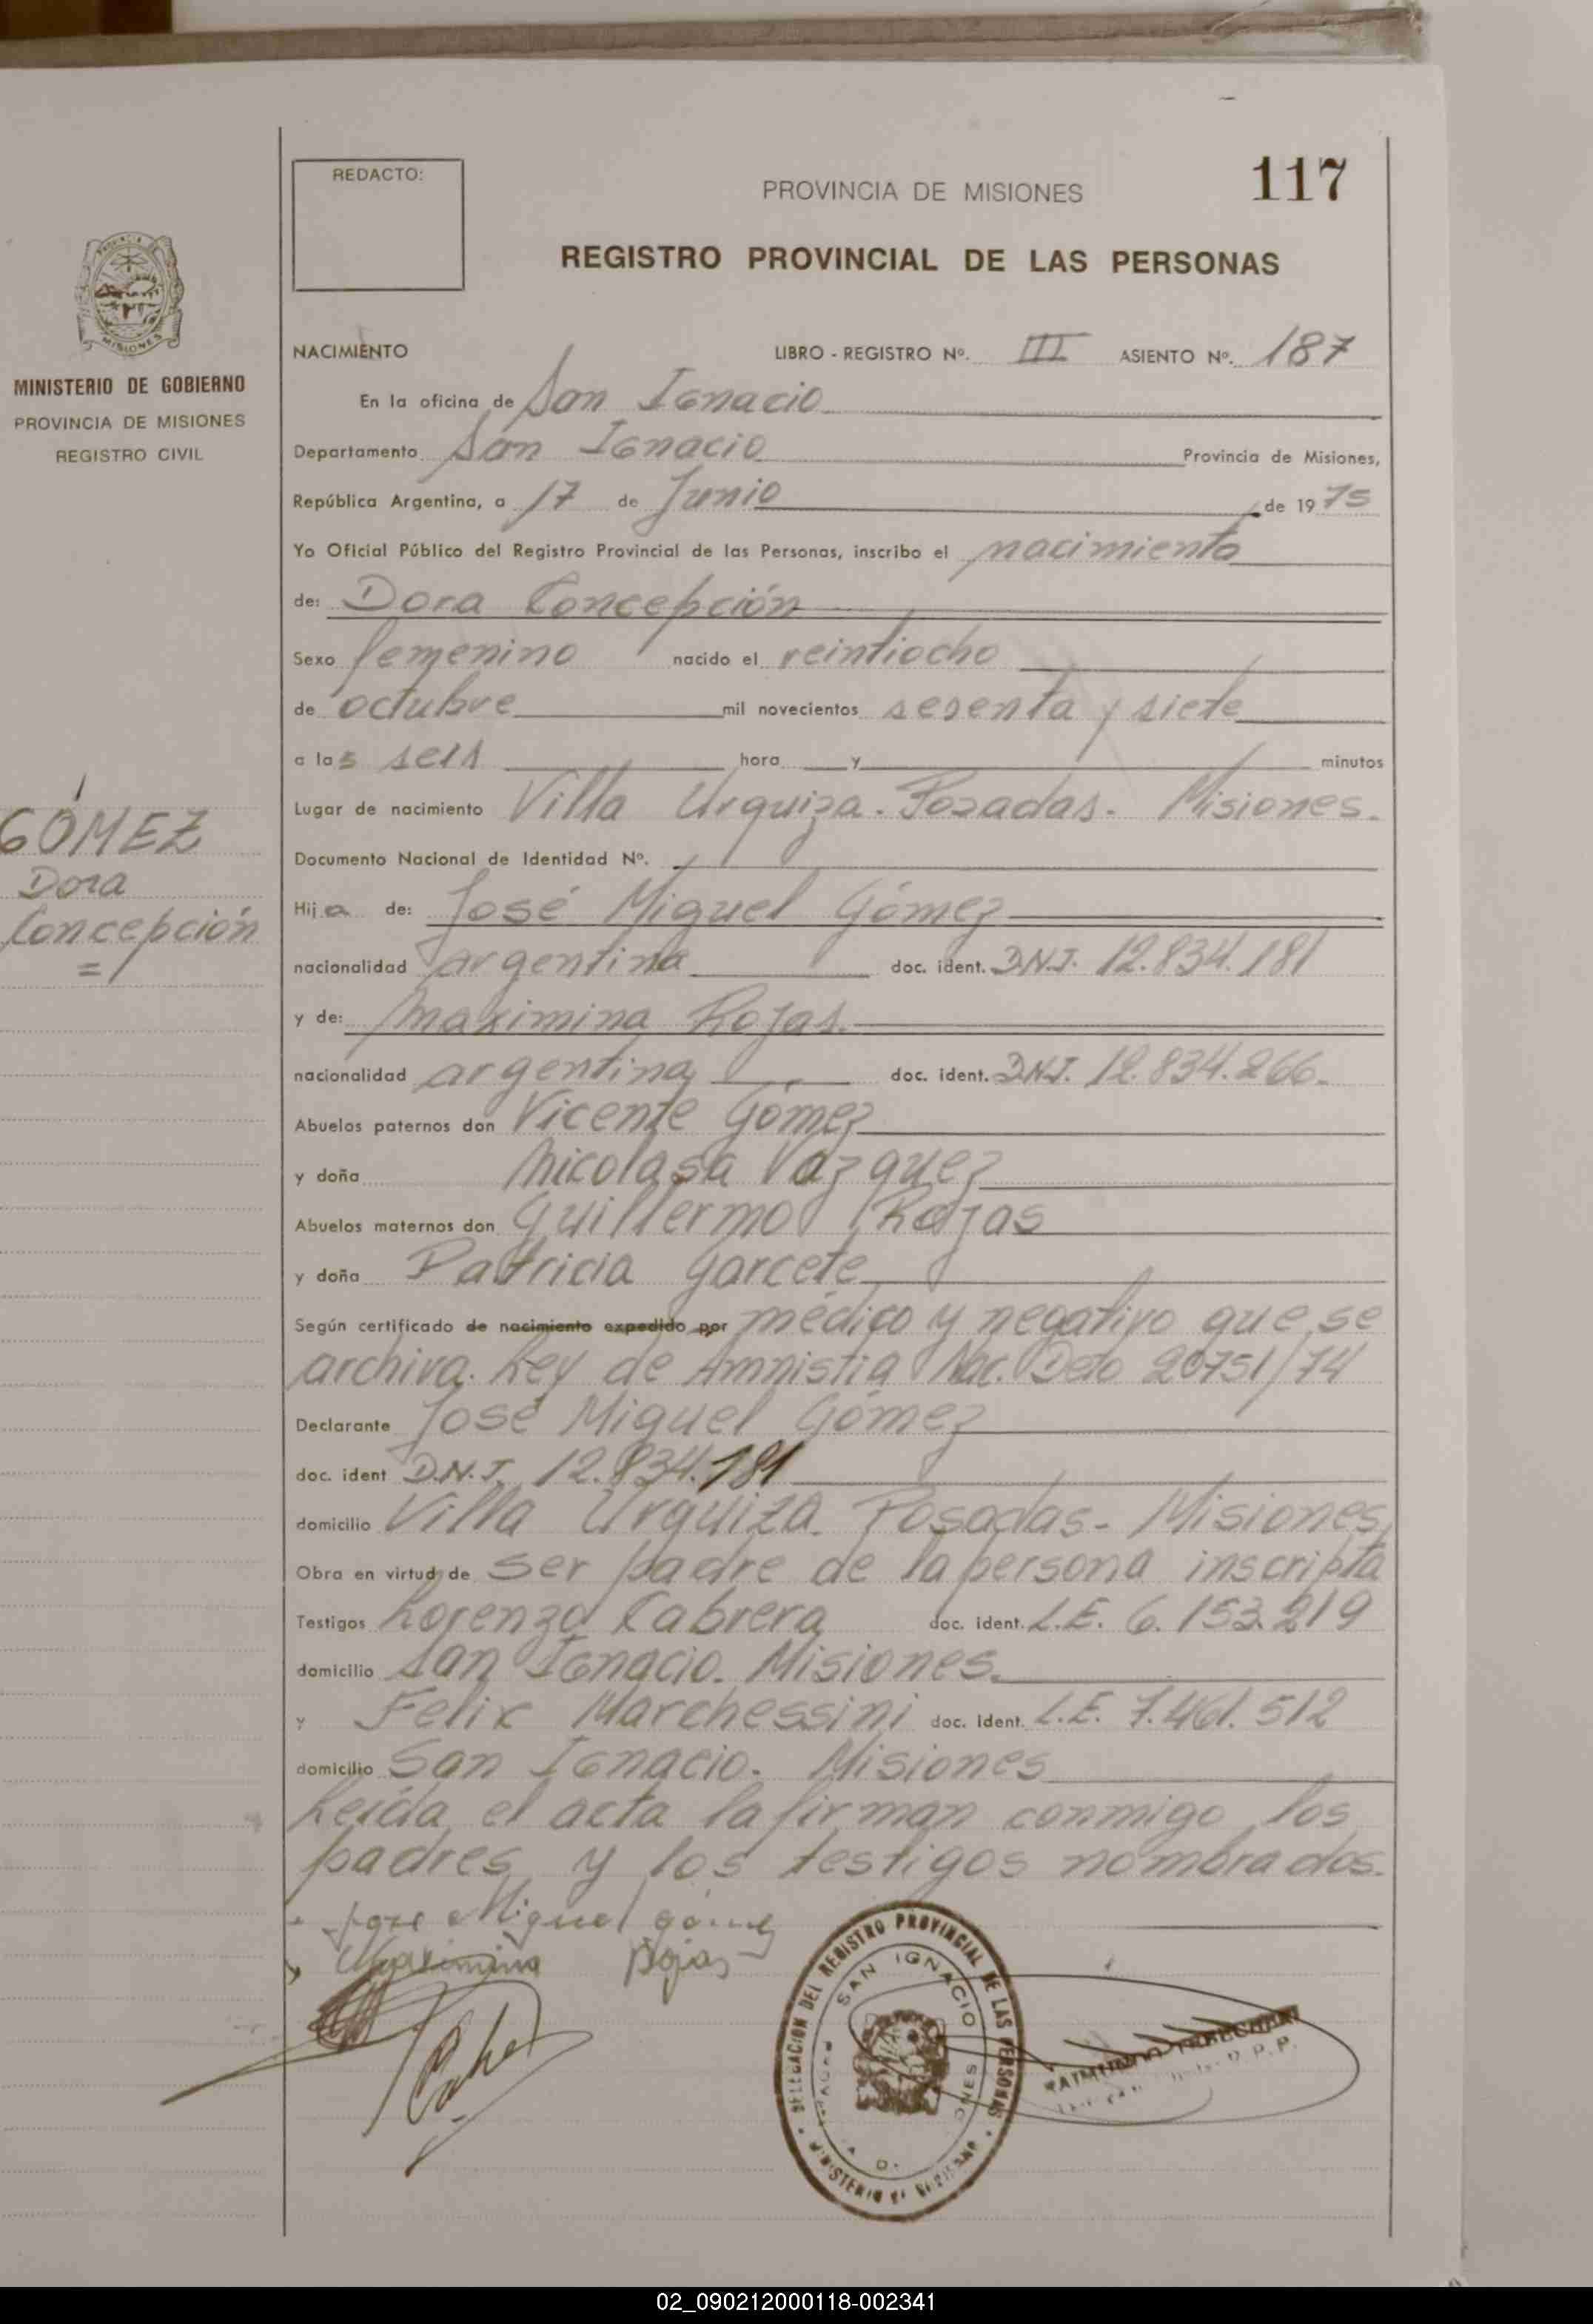 117
REDACTO:
PROVINCIA DE MISIONES
REGISTRO PROVINCIAL DE LAS PERSONAS
MISIONES
MINISTERIO DE GOBIERNO
PROVINCIA DE MISIONES
REGISTRO CIVIL
NACIMIENTO LIBRO - REGISTRO Nº. III ASIENTO Nº. 187
En la oficina de San Ignacio
Departamento San Ignacio Provincia de Misiones,
República Argentina, a 17 de Junio de 1975
Yo Oficial Público del Registro Provincial de las Personas, inscribo el nacimiento
de: Dora Concepción
Sexo femenino nacido el veintiocho
de octubre mil novecientos sesenta y siete
a las seis hora y minutos
Lugar de nacimiento Villa Urquiza. Posadas. Misiones.
Documento Nacional de Identidad Nº.
GÓMEZ
Dora
Concepción
Hija de: José Miguel Gómez
nacionalidad argentina doc. ident. D.N.I. 12.834.181
y de: Maximina Rojas.
nacionalidad argentina doc. ident. D.N.I. 12.834.266.
Abuelos paternos don Vicente Gómez
y doña Nicolasa Vazquez
Abuelos maternos don Guillermo Rojas
y doña Patricia Garcete
Según certificado de nacimiento expedido por médico y negativo que se
archiva. Ley de Amnistia Nac. Dcto 20751/74
Declarante José Miguel Gómez
doc. ident D.N.I. 12.834.181
domicilio Villa Urquiza. Posadas- Misiones,
Obra en virtud de ser padre de la persona inscripta
Testigos Lorenzo Cabrera doc. ident. L.E. 6.153.219
domicilio San Ignacio. Misiones.
y Felix Marchessini doc. ident. L.E. 7.461.512
domicilio San Ignacio. Misiones
Leída el acta la firman conmigo los
padres y los testigos nombrados.
Jose Miguel Gómez
Maximina Rojas
DELEGACION DEL REGISTRO PROVINCIAL DE LAS PERSONAS
SAN IGNACIO
MINISTERIO DE GOBIERNO
02_090212000118-002341